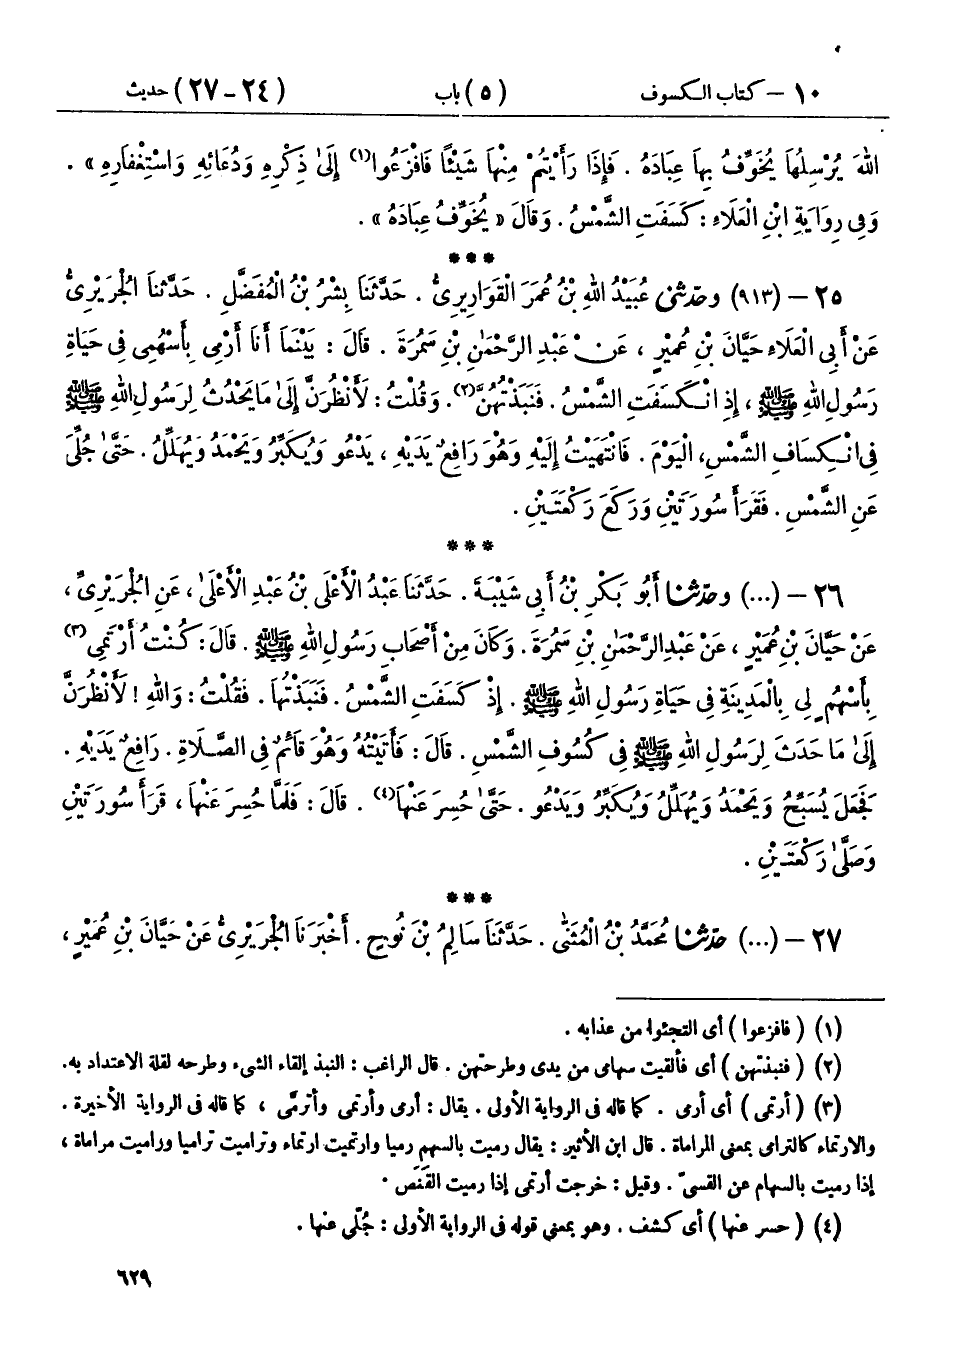 ١٠ – كتاب الكسوف (٥) باب (٢٤-٢٧) حديث
اللهَ يُرْسِلُهَا يُخَوِّفُ بِهَا عِبَادَهُ . فَإِذَا رَأَيْتُمْ مِنْهَا شَيْئًا فَافْزَعُوا(١) إِلَىٰ ذِكْرِهِ وَدُعَائِهِ وَاسْتِغْفَارِهِ » .
وَفِي رِوَايَةِ ابْنِ الْعَلَاءِ : كَسَفَتِ الشَّمْسُ . وَقَالَ « يُخَوِّفُ عِبَادَهُ » .
***
٢٥ – (٩١٣) وحَدَّثَنِي عُبَيْدُ اللهِ بْنُ عُمَرَ الْقَوَارِيرِيُّ . حَدَّثَنَا بِشْرُ بْنُ الْمُفَضَّلِ . حَدَّثَنَا الْجُرَيْرِيُّ
عَنْ أَبِي الْعَلَاءِ حَيَّانَ بْنِ عُمَيْرٍ ، عَنْ عَبْدِ الرَّحْمَٰنِ بْنِ سَمُرَةَ . قَالَ : بَيْنَمَا أَنَا أَرْمِي بِأَسْهُمِي فِي حَيَاةِ
رَسُولِ اللهِ ﷺ ، إِذِ انْكَسَفَتِ الشَّمْسُ . فَنَبَذْتُهُنَّ(٢). وَقُلْتُ : لَأَنْظُرَنَّ إِلَىٰ مَا يَحْدُثُ لِرَسُولِ اللهِ ﷺ
فِي انْكِسَافِ الشَّمْسِ، الْيَوْمَ . فَانْتَهَيْتُ إِلَيْهِ وَهُوَ رَافِعٌ يَدَيْهِ ، يَدْعُو وَيُكَبِّرُ وَيَحْمَدُ وَيُهَلِّلُ . حَتَّىٰ جُلِّيَ
عَنِ الشَّمْسِ . فَقَرَأَ سُورَتَيْنِ وَرَكَعَ رَكْعَتَيْنِ .
***
٢٦ – (...) وحَدَّثَنَا أَبُو بَكْرِ بْنُ أَبِي شَيْبَةَ . حَدَّثَنَا عَبْدُ الْأَعْلَى بْنُ عَبْدِ الْأَعْلَىٰ ، عَنِ الْجُرَيْرِيِّ ،
عَنْ حَيَّانَ بْنِ عُمَيْرٍ ، عَنْ عَبْدِ الرَّحْمَٰنِ بْنِ سَمُرَةَ . وَكَانَ مِنْ أَصْحَابِ رَسُولِ اللهِ ﷺ . قَالَ : كُنْتُ أَرْتَمِي (٣)
بِأَسْهُمٍ لِي بِالْمَدِينَةِ فِي حَيَاةِ رَسُولِ اللهِ ﷺ . إِذْ كَسَفَتِ الشَّمْسُ . فَنَبَذْتُهَا . فَقُلْتُ : وَاللهِ ! لَأَنْظُرَنَّ
إِلَىٰ مَا حَدَثَ لِرَسُولِ اللهِ ﷺ فِي كُسُوفِ الشَّمْسِ . قَالَ : فَأَتَيْتُهُ وَهُوَ قَائِمٌ فِي الصَّلَاةِ . رَافِعٌ يَدَيْهِ .
فَجَعَلَ يُسَبِّحُ وَيَحْمَدُ وَيُهَلِّلُ وَيُكَبِّرُ وَيَدْعُو . حَتَّىٰ حُسِرَ عَنْهَا(٤) . قَالَ : فَلَمَّا حُسِرَ عَنْهَا ، قَرَأَ سُورَتَيْنِ
وَصَلَّىٰ رَكْعَتَيْنِ .
***
٢٧ – (...) حَدَّثَنَا مُحَمَّدُ بْنُ الْمُثَنَّى . حَدَّثَنَا سَالِمُ بْنُ نُوحٍ . أَخْبَرَنَا الْجُرَيْرِيُّ عَنْ حَيَّانَ بْنِ عُمَيْرٍ ،
(١) ( فافزعوا ) أى التجئوا من عذابه .
(٢) ( فنبذتهن ) أى فألقيت سهامى من يدى وطرحتهن . قال الراغب : النبذ إلقاء الشىء وطرحه لقلة الاعتداد به.
(٣) ( أرتمى ) أى أرمى . كما قاله فى الرواية الأولى . يقال : أرمى وأرتمى وأترمّى ، كما قاله فى الرواية الأخيرة .
والارتماء كالترامى بمعنى المراماة . قال ابن الأثير : يقال رميت بالسهم رميا وارتميت ارتماء وتراميت تراميا وراميت مراماة ،
إذا رميت بالسهام عن القسىّ . وقيل : خرجت أرتمى إذا رميت القَنَص .
(٤) ( حسر عنها ) أى كشف . وهو بمعنى قوله فى الرواية الأولى : جُلّى عنها .
٦٢٩